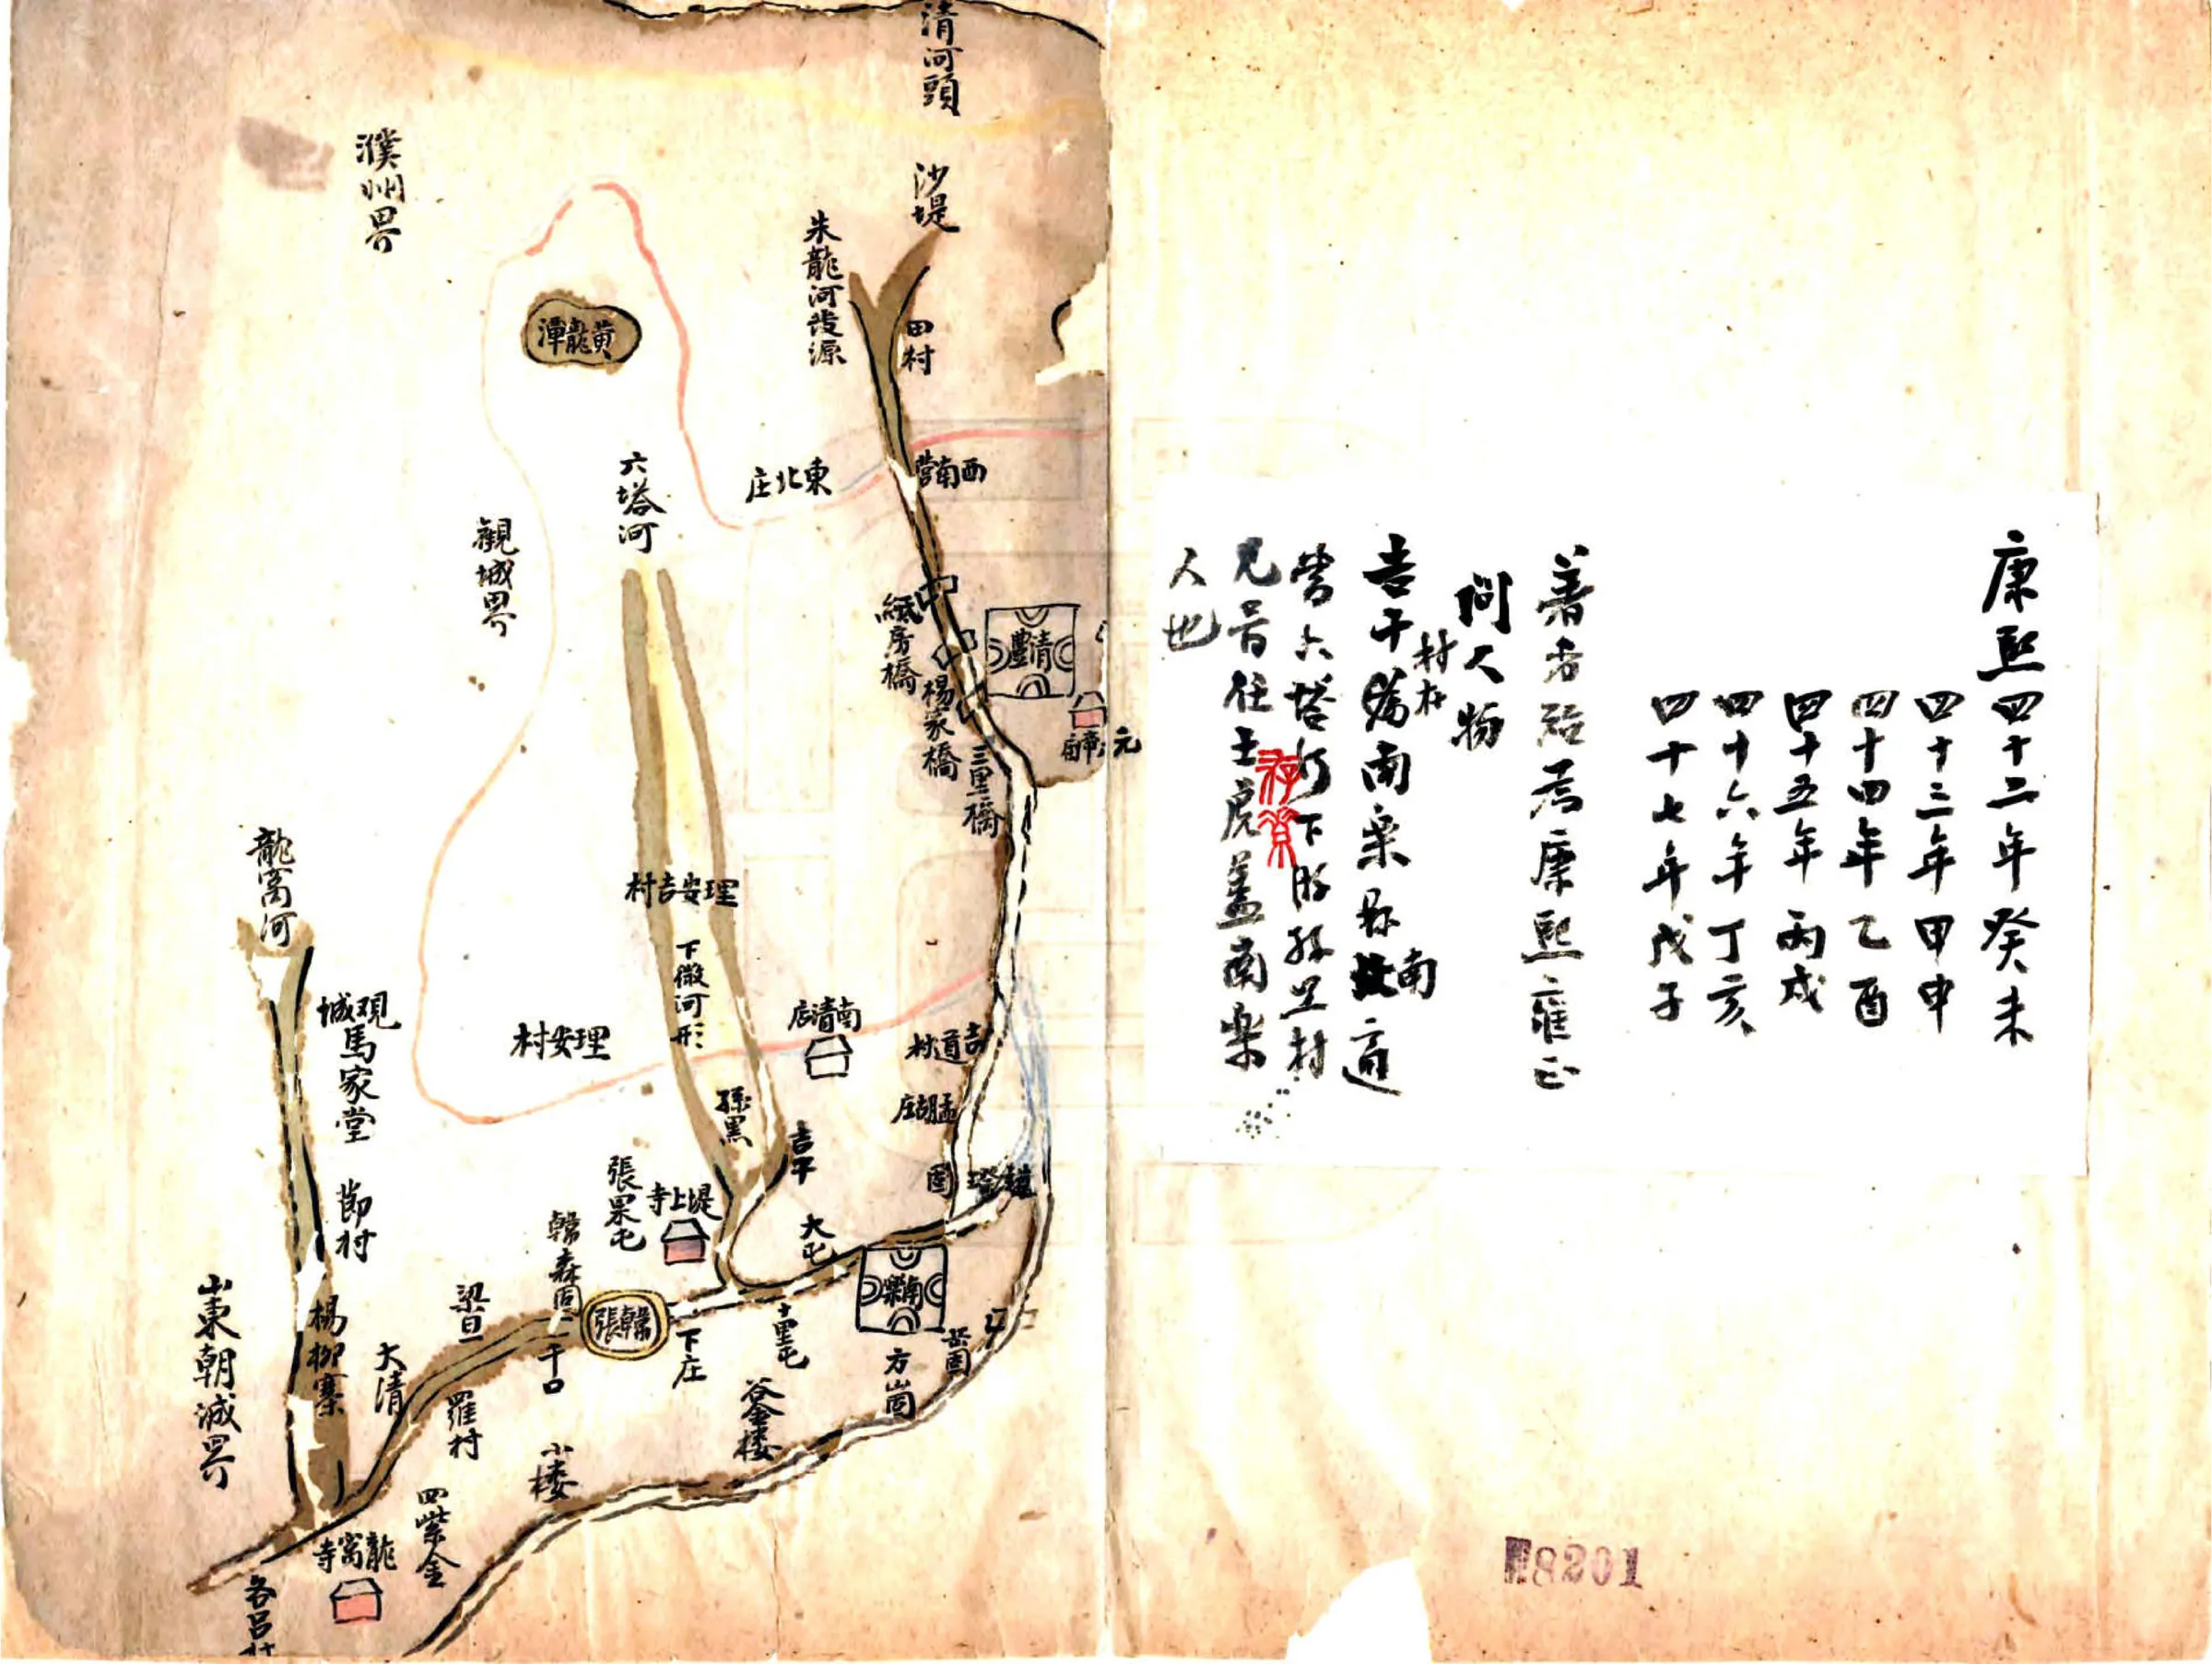 康熙四十二年癸未
四十三年甲申
四十四年乙酉
四十五年丙戌
四十六年丁亥
四十七年戊子
著者殆為康熙雍正
間人物
吉干
村在
南樂縣
南
六塔河下游孫黑村
人也
清河頭
沙堤
朱龍河發源
田村
濮州界
黃龍潭
西南營
東北庄
六塔河
觀城界
紙房橋
楊家橋
三里橋
清豐
元帝廟
理安吉村
下微河形
南清店
理安村
吉道村
孟胡庄
龍窩河
觀城
馬家堂
節村
孫黑
吉干
張果屯
堤上寺
大屯
南樂
韓張
韓森固
十里屯
下庄
方崮
岳固
谷金楼
梁目
大清
干口
羅村
小楼
楊柳寨
山東朝城界
四紫金
龍窩寺
各呂村
8201